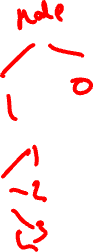 node
0
1
2
3